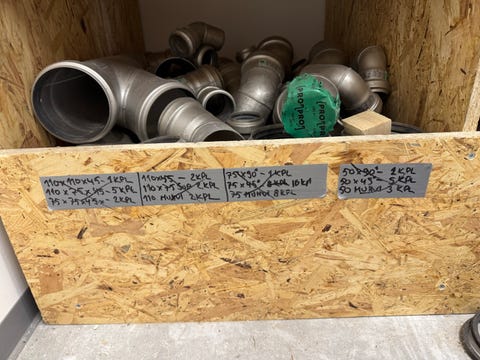 110x110x45 - 1KPL
110x75x45 - 5KPL
75x75x45 - 2KPL
110x45 - 2KPL
110x75 SUP 2KPL
110 MUHVI 2KPL
75x90° - 1KPL
75x45° 10KPL
75 MUHVI 8KPL
50x90° - 2KPL
50x45° - 5KPL
50 MUHVI 3KPL